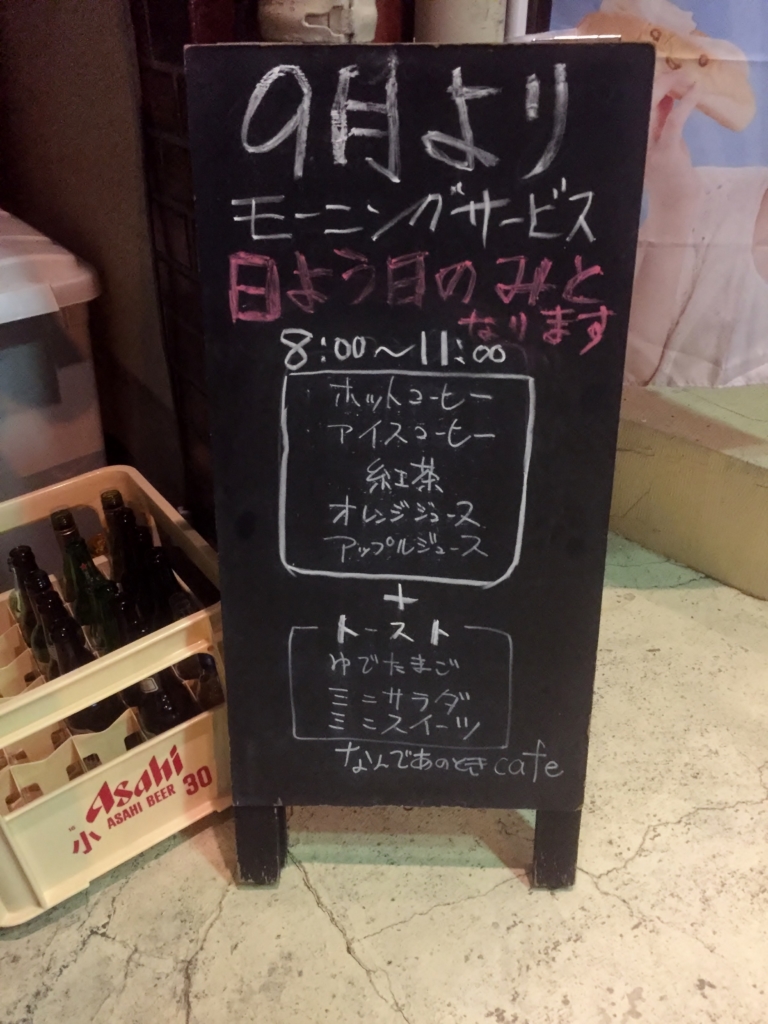 9月より
モーニングサービス
日よう日のみと
なります
8:00～11:00
ホットコーヒー
アイスコーヒー
紅茶
オレンジジュース
アップルジュース
+
トースト
ゆでたまご
ミニサラダ
ミニスイーツ
なんであのとき cafe
Asahi
ASAHI BEER 30
小